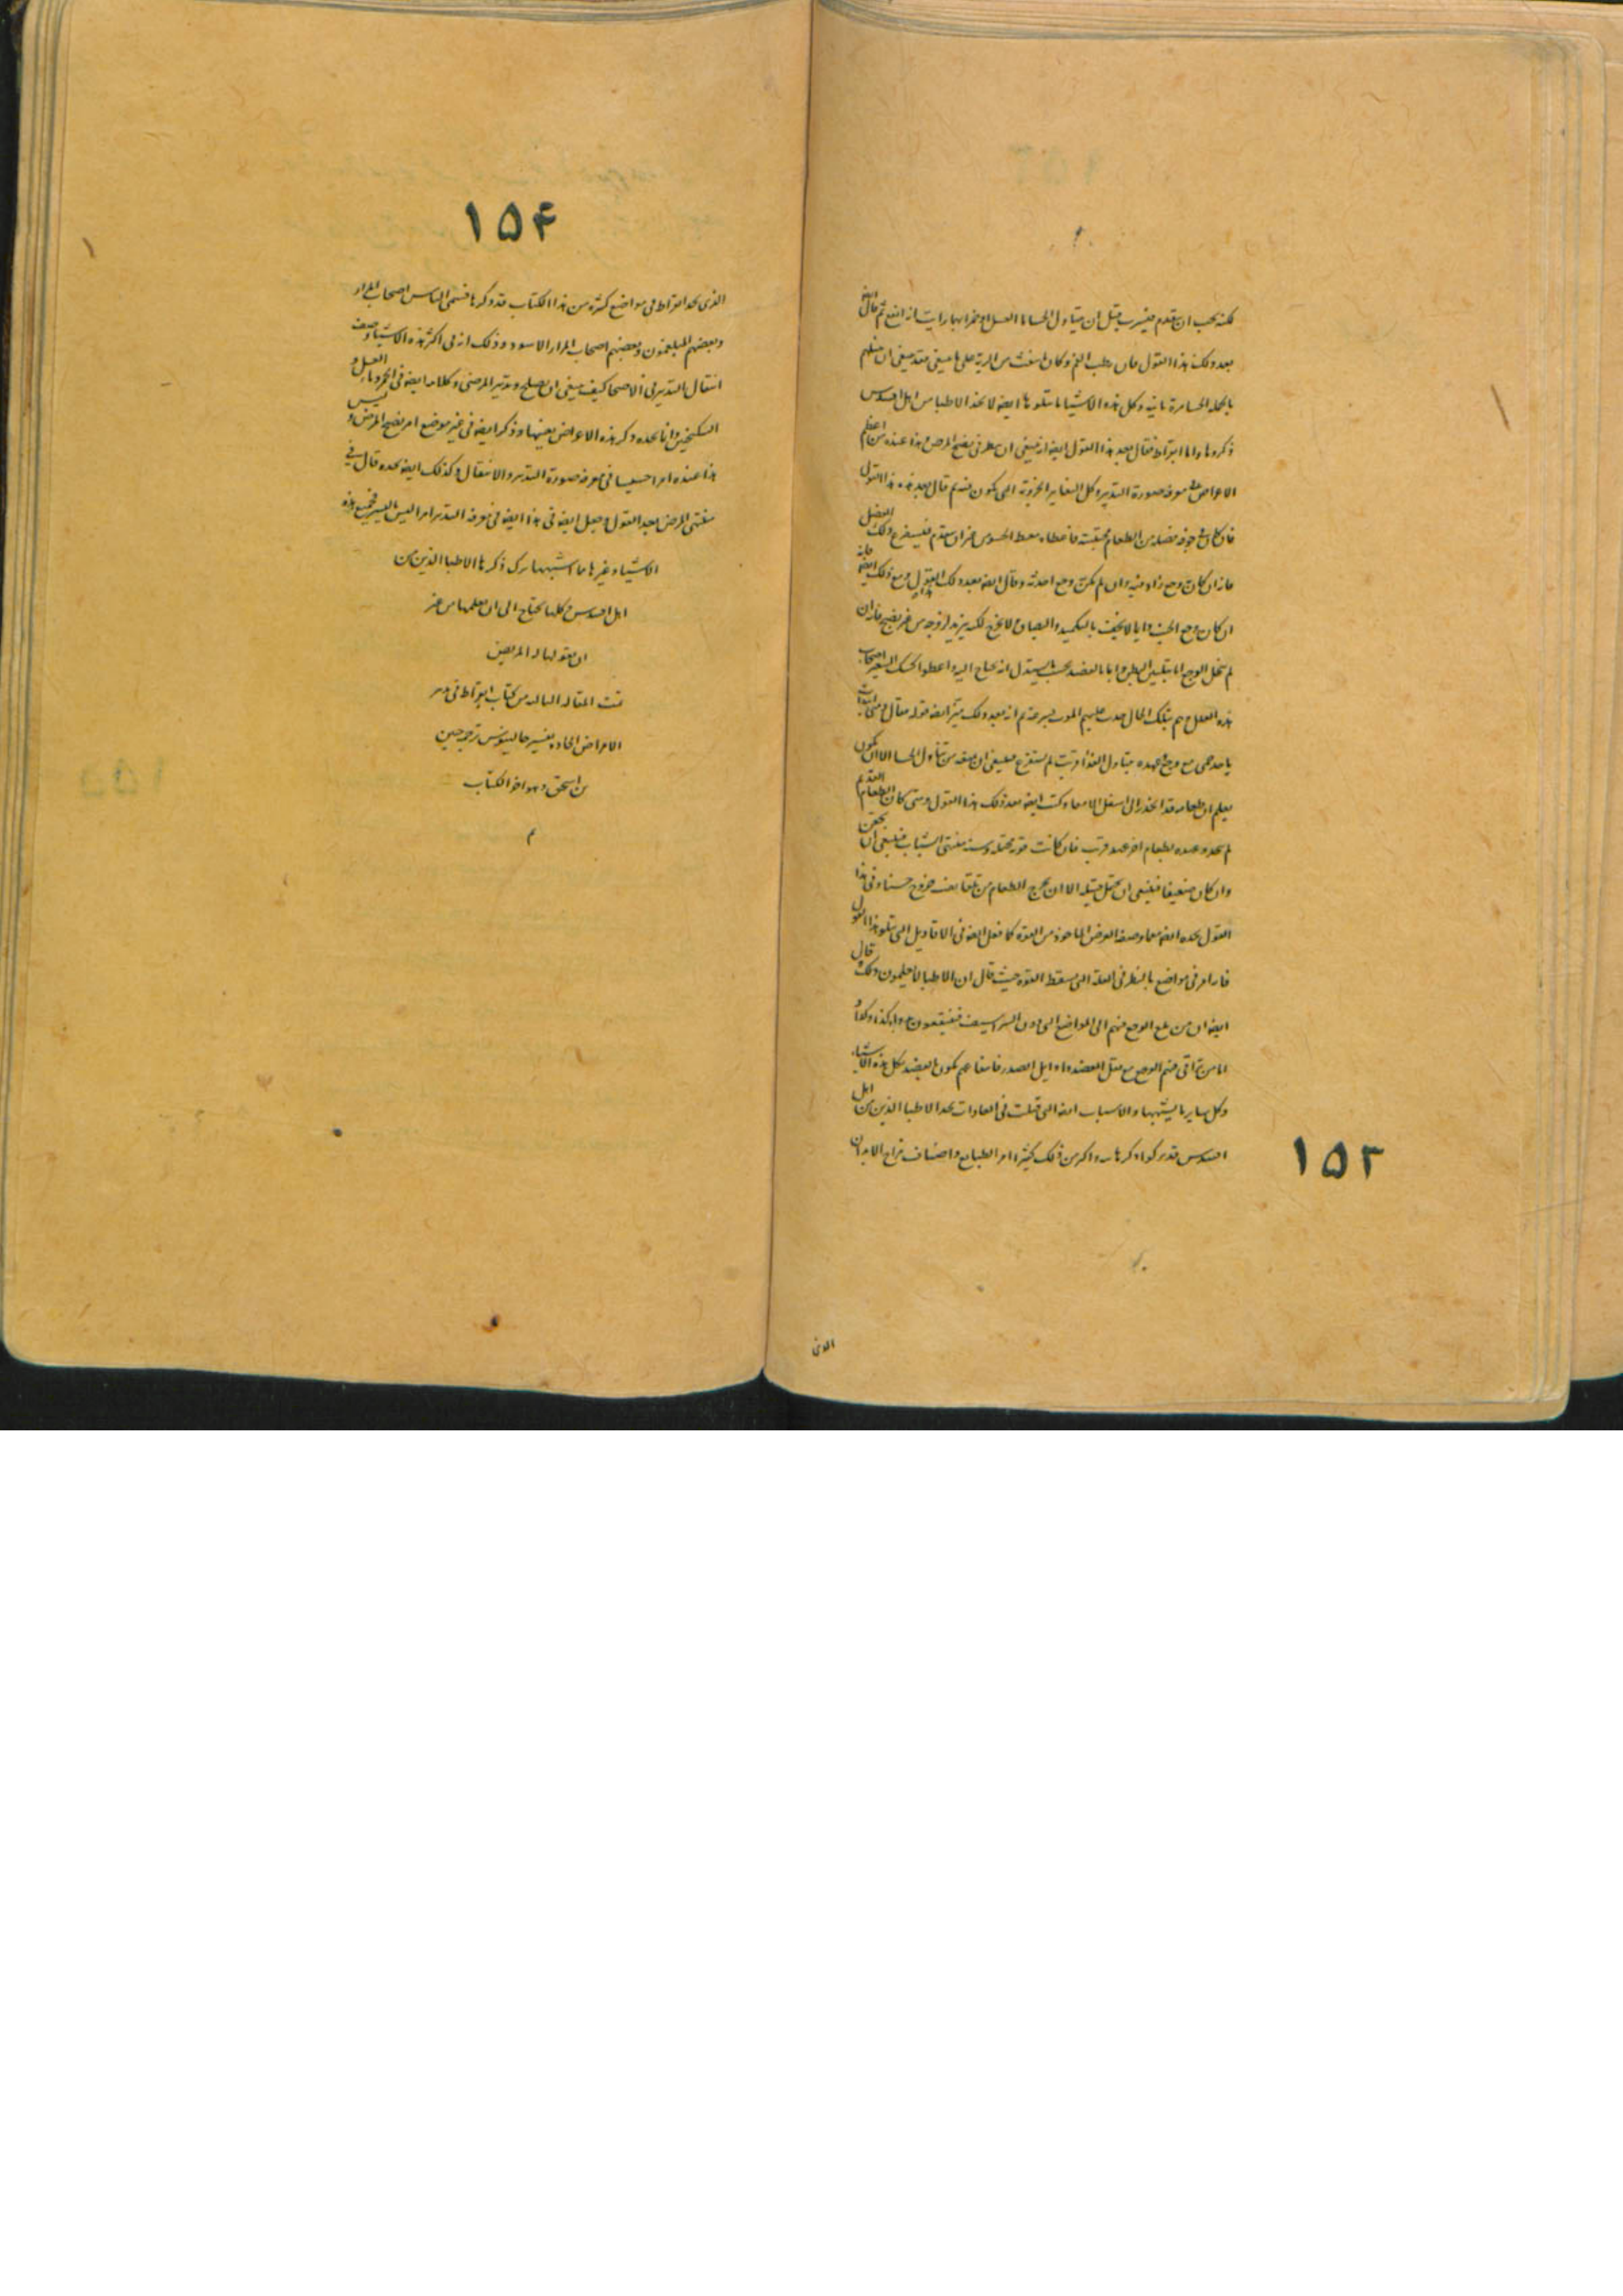 لكنه يجب ان يتقدم فيشرب قبل ان يتناول الحساء اما العسل او خمرا ايهما رايت انه انفع ثم قال ايضا
بعد ذلك هذا القول فان رطب الفم وكان ما ينفث من الرية على ما ينبغي فقد ينبغي ان
بالجملة الحساء مرة ثانية وكل هذه الاشياء ما يتلوها ايضا لا نجد الاطبا من اهل اقنيدس
ذكروها واما ابقراط فقال بعد هذا القول ايضا انه ينبغي ان ينظر في نضج المرض وهذا عنده من اعظم
الاعراض في معرفة صورة التدبير وكل التغايير الجزوية التي تكون فيه ثم قال بعد هذه هذا القول
فان كان في جوفه فضلة من الطعام محتبسة فاعطاه معط الحسو من غير ان يتقدم فيستفرغ ذلك الفضل
فانه ان كان به وجع زاد فيه وان لم يكن به وجع احدثه وقال ايضا بعد ذلك هذا القول ومع ذلك ايضا فانه
ان كان وجع الجنب دايما لا يخف بالتكميد والبصاق لا يخرج لكنه يزيد لزوجة من غير نضج فانه ان
لم يحل الوجع اما بتليين البطن واما بالفصد بحسب ما يستدل انه يحتاج اليه واعطوا كشك الشعير اصحاب
هذه العلل وهم بتلك الحال حدث عليهم الموت بسرعة ثم انه بعد ذلك
ياخذ حمى مع وجع عهده بتناول الغذا قريب لم يستفرغ فينبغي ان يمنعه من تناول الحسا الا ان يكون
يعلم ان طعامه قد انحدر الى اسفل الامعاء وكتب ايضا بعد ذلك هذا القول ومتى كان الطعام القديم
لم ينحدر وعهده بطعام اخر عهد قريب فان كانت قوته محتملة وسنه منتهى الشباب فينبغي ان يحقن
وان كان ضعيفا فينبغي ان يحتمل فتيلة الا ان يخرج الطعام من تلقا نفسه خروج حسنا وفي هذا
القول نجده ايضا معما وصفه الغرض الماخوذ من القوة كما فعل ايضا في الاقاويل التي تتلو هذا القول
فانه امر في مواضع بالنظر في العلة التي تسقط القوة حيث قال ان الاطبا لا يعلمون ذلك قال
ايضا ان من بلغ الوجع منهم الى المواضع التي دون الشراسيف فينبغي ان يعالجوا بكذا وكذا
اما من تراقى منهم الوجع مع ثقل العضد او اوايل الصدر فانتفاعهم يكون بالفصد بكل هذه الاشيا
وكل ساير ما يشبهها والاسباب ايضا التي قيلت في العادات نجد الاطبا الذين من اهل
اقنيدس قد تركوا ذكرها واكثر من ذلك كثيرا امر الطبايع واصناف مزاج الابدان
١٥٣
الذي
١٥۴
الذي نجد ابقراط في مواضع كثيرة من هذا الكتاب قد ذكرها فسمى الناس اصحاب المرار
وبعضهم المبلغمون وبعضهم اصحاب المرار الاسود وذلك انه في اكثر هذه الاشياء وصف
انتقال التدبير في الاصحا كيف ينبغي ان يصلح وتدبير المرضى وكلامه ايضا في الخمر وماء العسل و
السكنجبين وانا نجده ذكر هذه الاعراض بعينها وذكر ايضا في غير موضع امر نضج المرض وليس
هذا عنده امرا خسيسا في معرفة صورة التدبير والانتقال وكذلك ايضا نجده قال في
منتهى المرض بعد القول وجعل ايضا في هذا ايضا في معرفة التدبير امرا ليس باليسير فجميع هذه
الاشياء وغيرها ما اشبهها ترك ذكرها الاطبا الذين من
اهل اقنيدس وكلها يحتاج الى ان يعلمها من غير
ان يقولها له المريض
تمت المقالة الثالثة من كتاب ابقراط في تدبير
الامراض الحادة بتفسير جالينوس ترجمة حنين
بن اسحق وهو اخر الكتاب
م